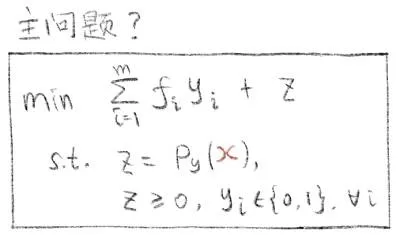 主问题?
min \sum_{i=1}^{m} f_i y_i + z
s.t. z = P_y(x),
z ≥ 0, y_i ∈ {0,1}, ∀i